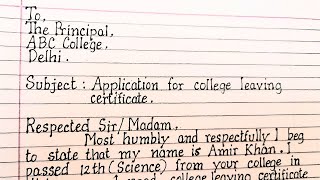 To,
The Principal,
ABC College.
Delhi.
Subject : Application for college leaving
certificate.
Respected Sir/Madam,
Most humbly and respectfully I beg
to state that my name is Amir Khan. I
passed 12th (Science) from your college in
college leaving certificate